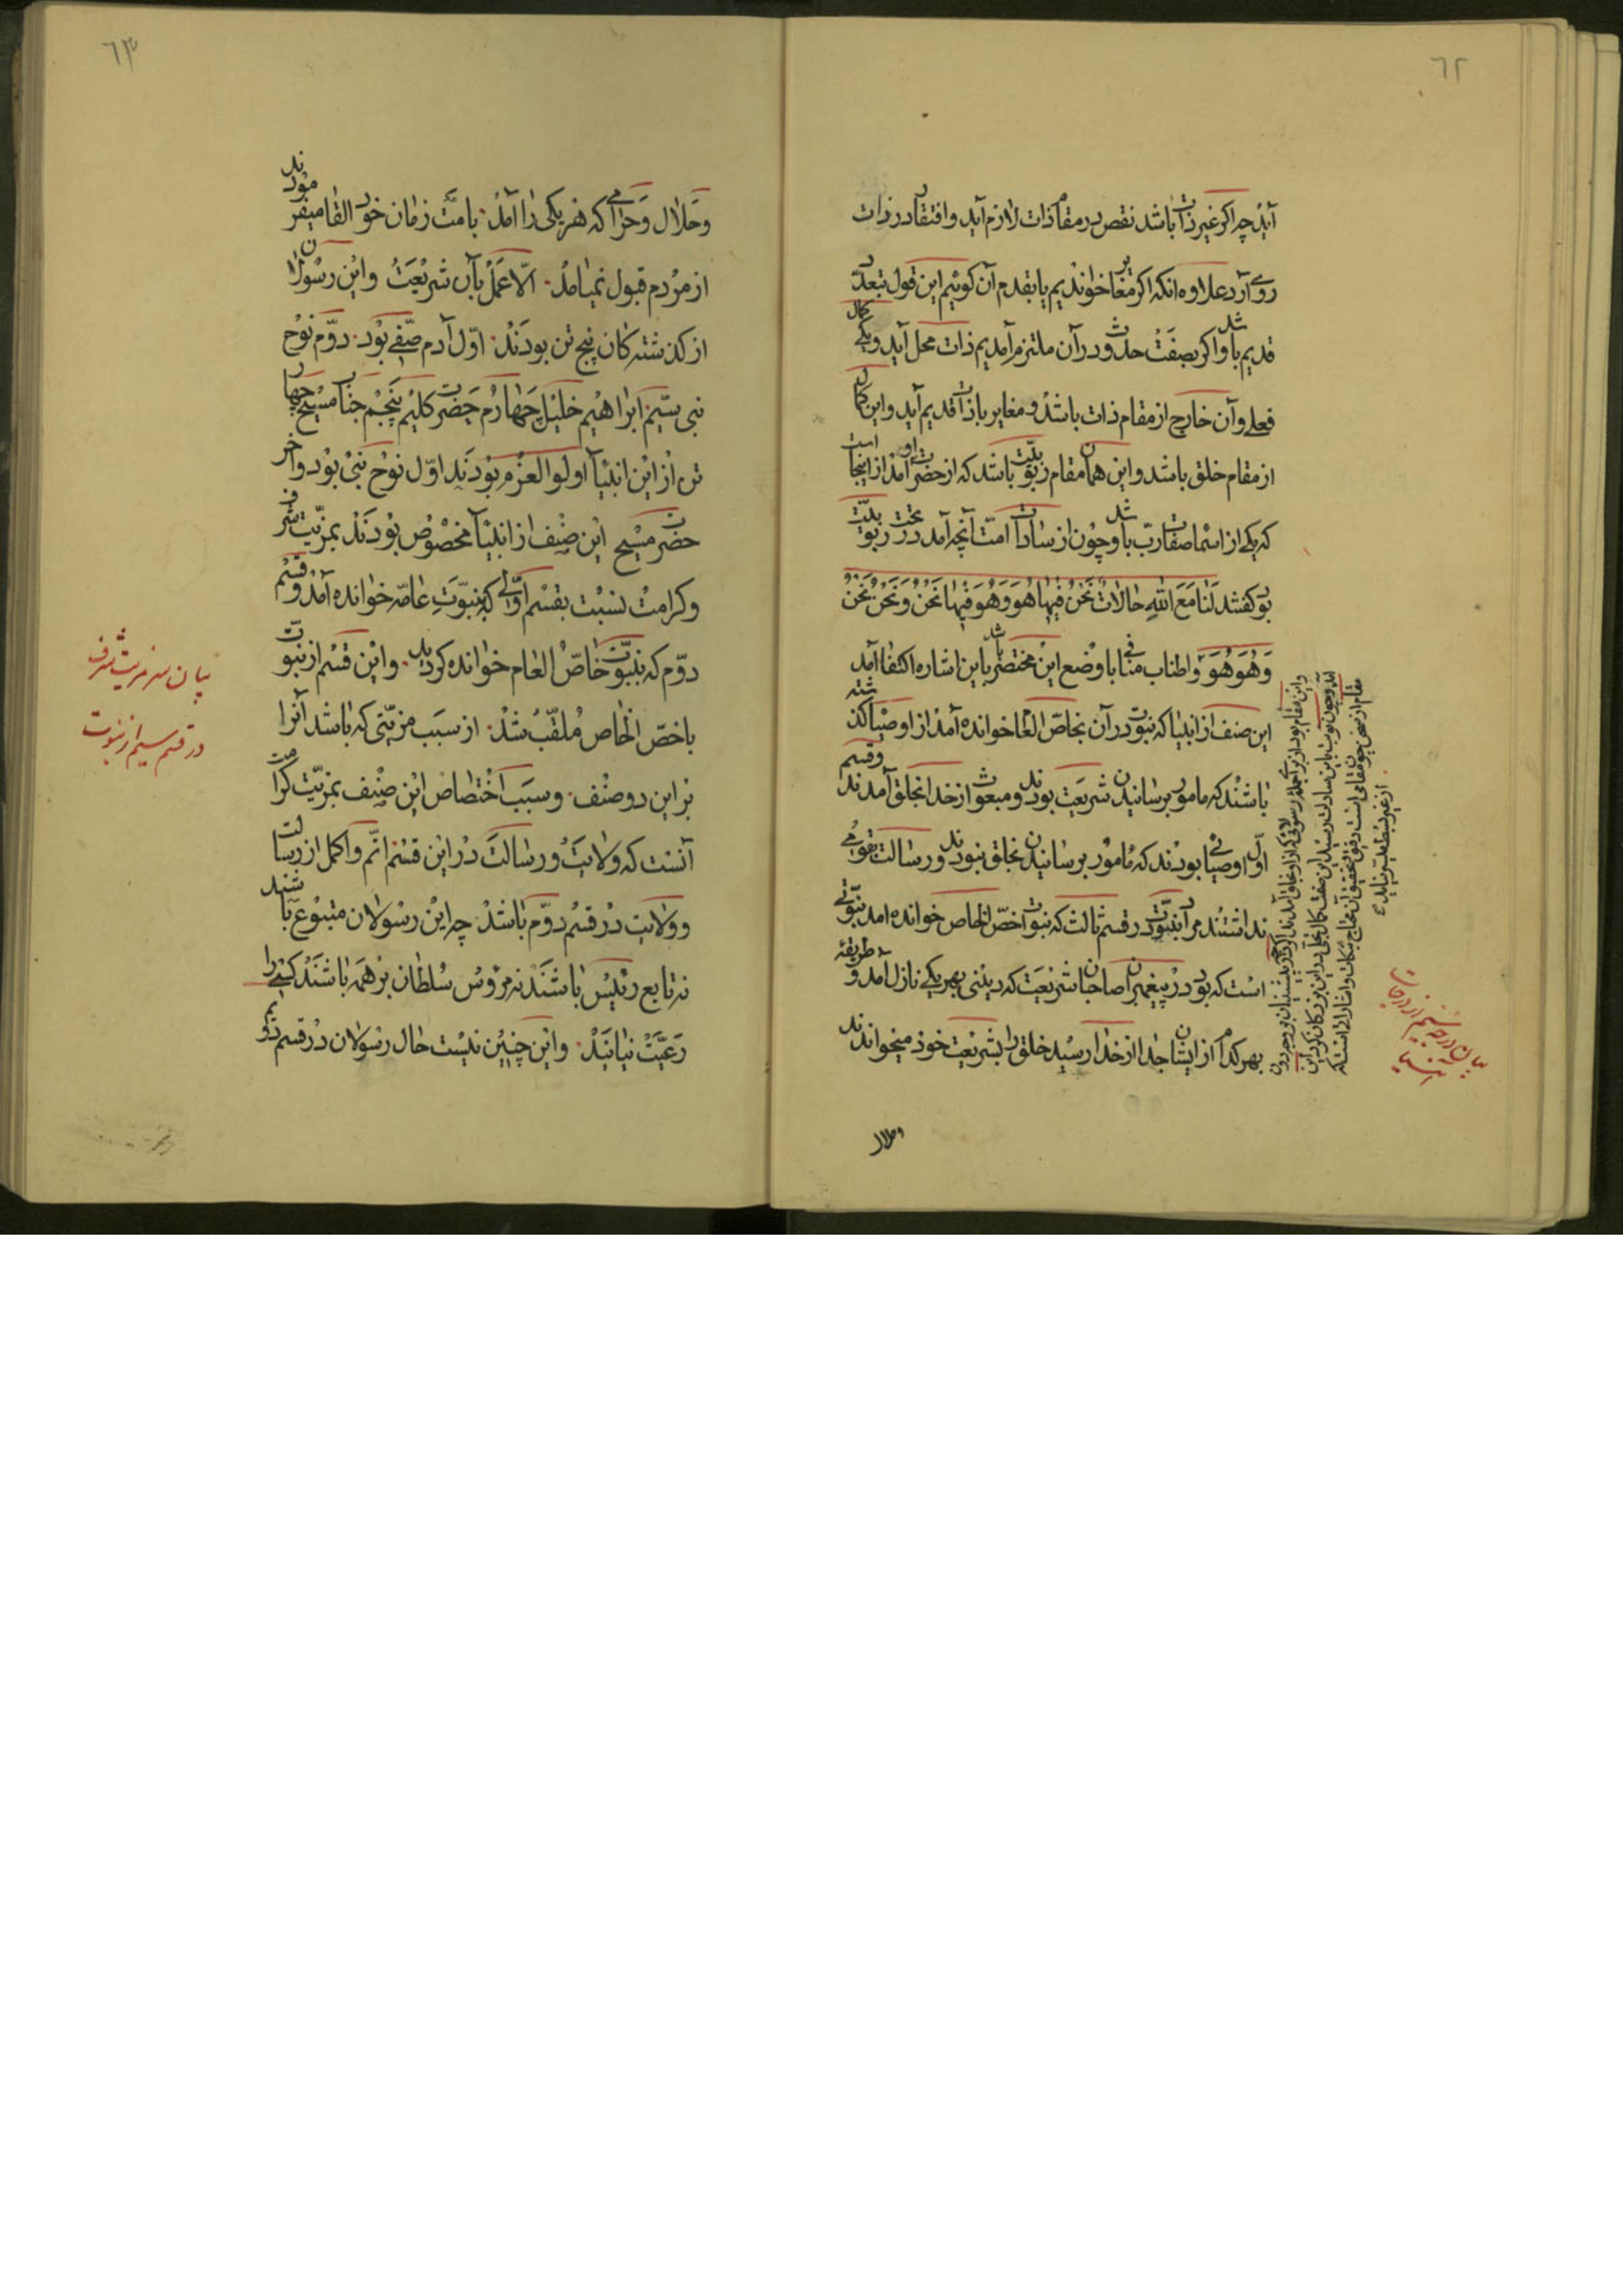 ٦٢
آید چه اکر غیر ذات باشد نقص در مقام ذات لازم آید و افتقار در ذات
روی آرد علاوه انکه اکر مغایر خواندیم یا بقدم آن کوئیم این قول بتعدد
قدیم باشد و اکر بصفت حدوث در آن ملتزم آمدیم ذات محل آید و یکی کمال
فعلی و آن خارج از مقام ذات باشد و مغایر با ذات قدیم آید و این کمال
از مقام خلق باشد و این همان مقام ربوبیّت باشد که از حضرت او آمد از اینجا است
که یکی از اسما صفات ربّ باشد و چون از سادات امّت آنچه آمد در تحت ربوبیّت
بود کفته شد لَنا مَعَ اللهِ حالاتٌ نَحْنُ فیها هُوَ وَ هُوَ فیها نَحْنُ وَ نَحْنُ نَحْنُ
وَ هُوَ هُوَ و اطناب منافی با وضع این مختصر باشد باین اشاره اکتفا آمد
این صنف از انبیا که نبوت در آن بخاصّ العام خوانده آمد از اوصیا کذشته
باشند که مامور برسانیدن شریعت بودند و مبعوث از خدا بخلق آمدند و قسم
اوّل اوصیائی بودند که مامور برسانیدن بخلق نبودند و رسالت بقومی
نداشتند مر آن نبوّت در قسم ثالث که نبوت اخصّ الخاص خوانده امد نبوّتی
است که بود در پیغمبران صاحبان شریعت که دینی بهر یکی نازل آمد و طریقهٔ
بهر کدام از ایشان جدا از خدا رسید خلق را بشریعت خود میخواندند
و حلال
بیان درجه سیم از درجات انبیا
٦٣
و حَلال و حَرامی که هر یکی را آمد بامّت زمان خود القا میفرمودند
از مردم قبول نمیامد الّا عمل بآن شریعت و این رسولان
از کذشتهکان پنج تن بودند اوّل آدم صفی بود دوّم نوح
نبی سیّم ابراهیم خلیل چهارم حضرت کلیم پنجم جناب مسیح چهار
تن از این انبیا اولو العزم بودند اوّل نوح نبی بود و آخر
حضرت مسیح این صنف از انبیا مخصوص بودند بمزیّت شرف
و کرامت نسبت بقسم اوّلی که بنبوّت عامّه خوانده آمد و قسم
دوّم که بنبوّت خاصّ العام خوانده کردید و این قسم از نبوّت
باخصّ الخاص ملقّب شد از سبب مزیّتی که باشد آنرا
بر این دو صنف و سبب اختصاص این صنف بمزیّت کرامت
آنست که ولایت و رسالت در این قسم اتمّ و اکمل از رسالت
و ولایت در قسم دوّم باشد چه این رسولان متبوع باشند
نه تابع رئیس باشند نه مرؤس سلطان بر همه باشند کسی را
رعیّت نیایند و این چنین نیست حال رسولان در قسم دویم
بیان سر مزیت شرف
در قسم سیم از نبوت